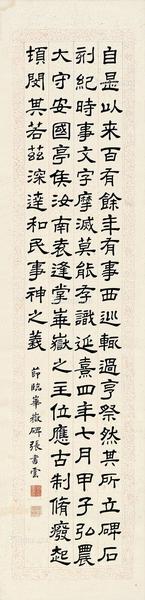 自是以來百有餘年有事西巡輒過亨祭然其所立碑石
刻紀時事文字摩滅莫能存識延熹四年七月甲子弘農
大守安國亭侯汝南袁逢掌華嶽之主位應古制脩廢起
頓閔其若茲深達和民事神之義
節臨華嶽碑 張書雲